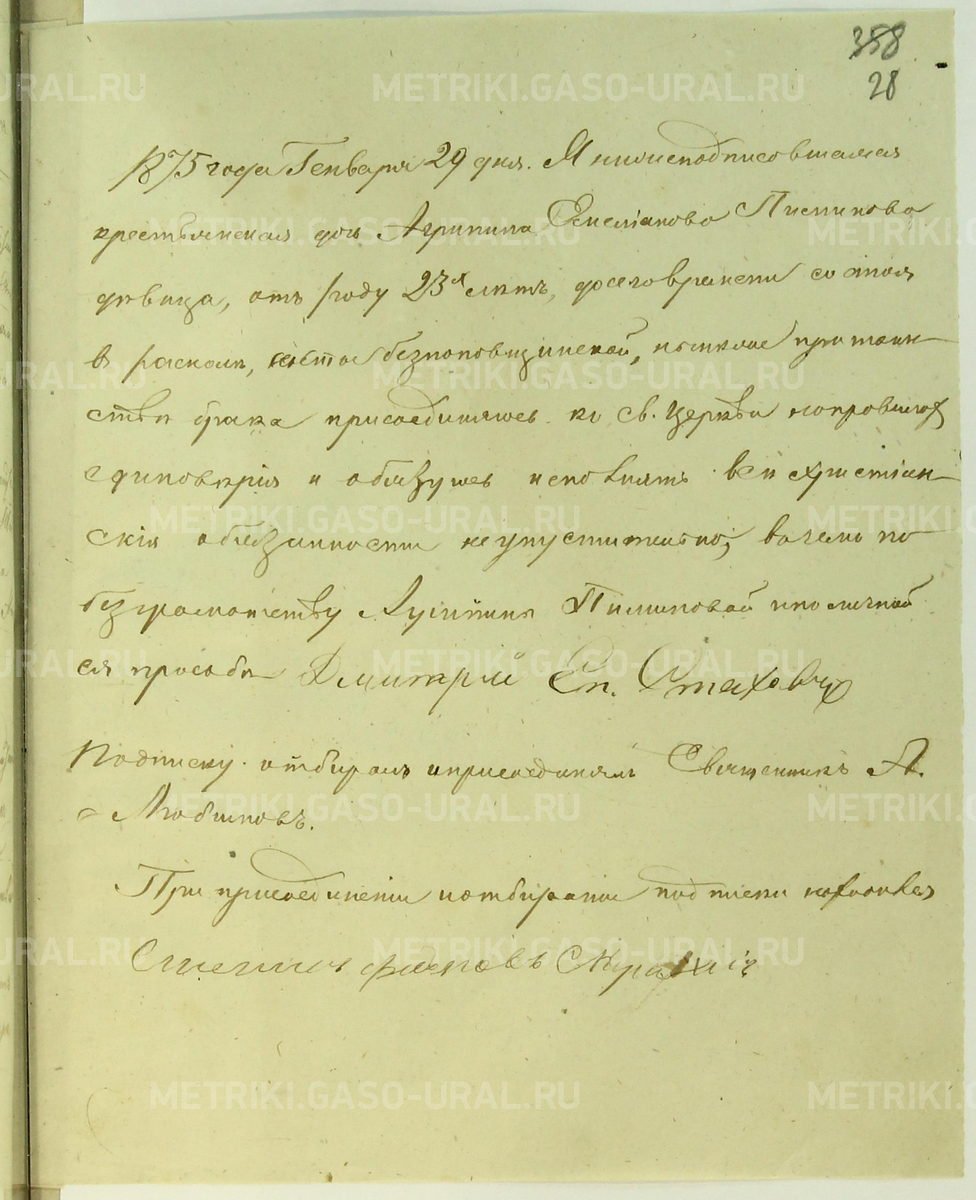 358
28
1875 года Генваря 29 дня. Я нижеподписовшаяся
крестьянская дочь Агрипина Емелианова Пименова
девица, отъ роду 23х летъ, досеговремени состоя
в расколе, секты безпоповщинской, ныне же при таин-
стве брака присоединяюсь ко св. Церкви на правилах
единоверия и обязуюсь исполнять все христиан-
ския обязанности неупустительно, в чемъ по
безграмотству Агрипины Пименовой и по личной
ея просьбе Дмитрий Еп. Стахович
Подписку отбиралъ и присоединялъ Священникъ А.
Любимовъ.
При присоединении и отбирании подписки находился
METRIKI.GASO-URAL.RU